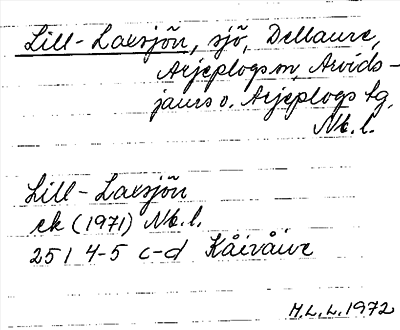 Lill-Laxsjön, sjö, Dellaure,
Arjeplogs sn, Arvids-
jaurs o. Arjeplogs tg,
Nb. l.
Lill-Laxsjön
ek (1971) Nb. l.
25 I 4-5 c-d Kåivåive
H. L. L. 1972